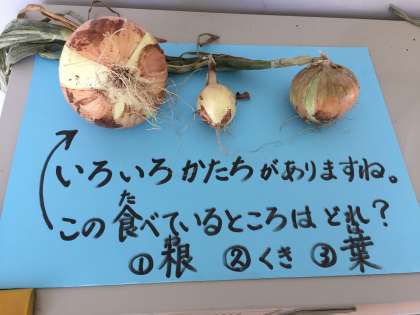 いろいろかたちがありますね。
この食べているところはどれ?
①根 ②くき ③葉